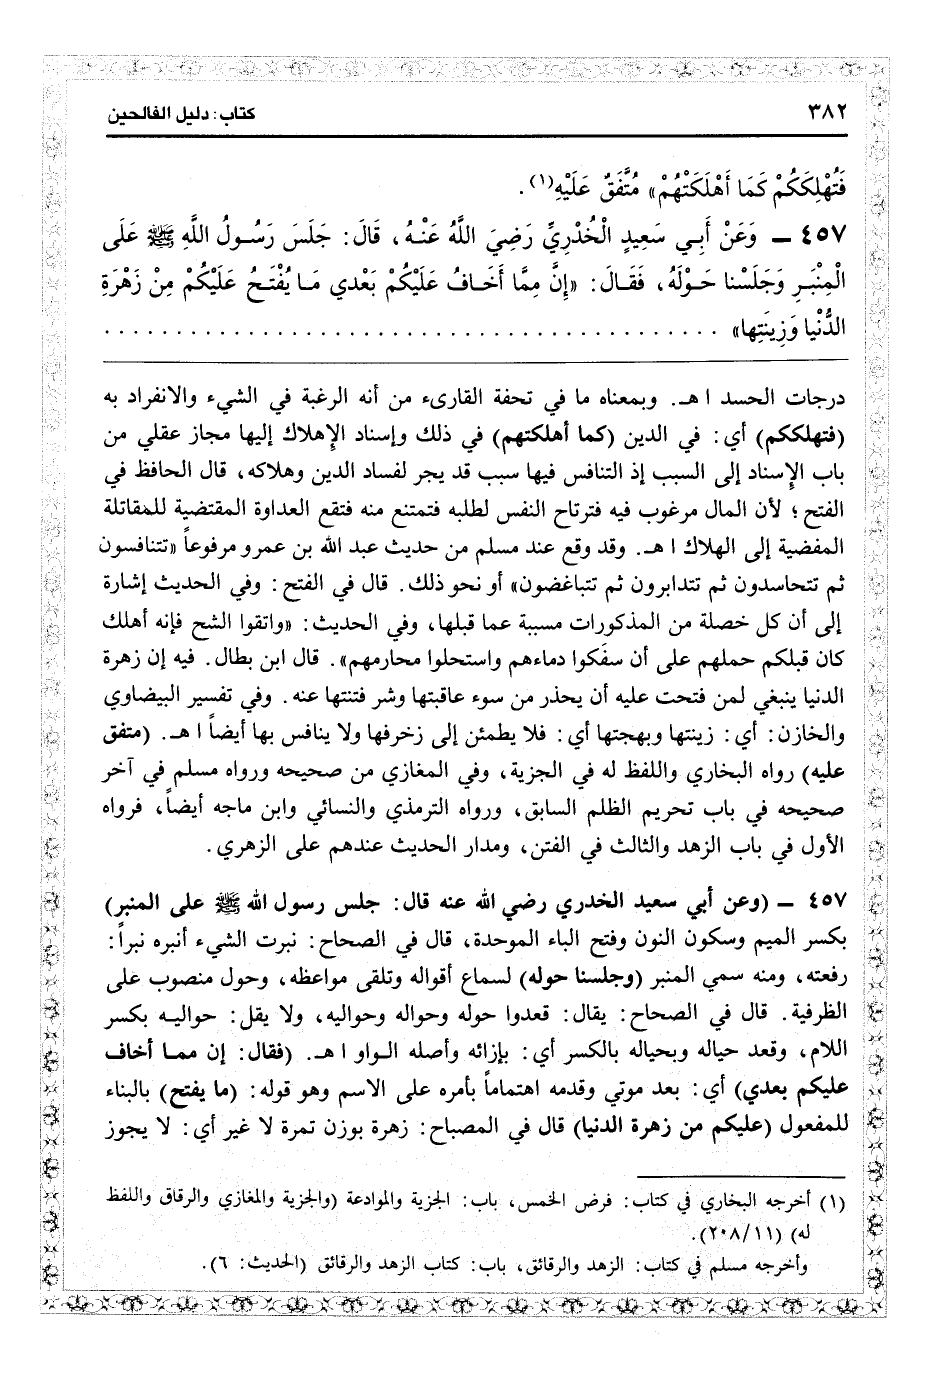 ٣٨٢
كتاب: دليل الفالحين
فَتُهْلِكَكُمْ كَمَا أَهْلَكَتْهُمْ» مُتَّفَقٌ عَلَيْهِ(١).
٤٥٧ – وَعَنْ أَبِي سَعِيدٍ الْخُدْرِيِّ رَضِيَ اللَّهُ عَنْهُ، قَالَ: جَلَسَ رَسُولُ اللَّهِ ﷺ عَلَى
الْمِنْبَرِ وَجَلَسْنا حَوْلَهُ، فَقَالَ: «إِنَّ مِمَّا أَخَافُ عَلَيْكُمْ بَعْدي مَا يُفْتَحُ عَلَيْكُمْ مِنْ زَهْرَةِ
الدُّنْيا وَزِينَتِها» . . . . . . . . . . . . . . . . . . . . . . . . . . . . . . . . . . . . . . . .
درجات الحسد اهـ. وبمعناه ما في تحفة القارىء من أنه الرغبة في الشيء والانفراد به
(فتهلككم) أي: في الدين (كما أهلكتهم) في ذلك وإسناد الإِهلاك إليها مجاز عقلي من
باب الإِسناد إلى السبب إذ التنافس فيها سبب قد يجر لفساد الدين وهلاكه، قال الحافظ في
الفتح؛ لأن المال مرغوب فيه فترتاح النفس لطلبه فتمتنع منه فتقع العداوة المقتضية للمقاتلة
المفضية إلى الهلاك اهـ. وقد وقع عند مسلم من حديث عبد الله بن عمرو مرفوعاً «تتنافسون
ثم تتحاسدون ثم تتدابرون ثم تتباغضون» أو نحو ذلك. قال في الفتح: وفي الحديث إشارة
إلى أن كل خصلة من المذكورات مسببة عما قبلها، وفي الحديث: «واتقوا الشح فإنه أهلك
كان قبلكم حملهم على أن سفَكوا دماءهم واستحلوا محارمهم». قال ابن بطال. فيه إن زهرة
الدنيا ينبغي لمن فتحت عليه أن يحذر من سوء عاقبتها وشر فتنتها عنه. وفي تفسير البيضاوي
والخازن: أي: زينتها وبهجتها أي: فلا يطمئن إلى زخرفها ولا ينافس بها أيضاً اهـ. (متفق
عليه) رواه البخاري واللفظ له في الجزية، وفي المغازي من صحيحه ورواه مسلم في آخر
صحيحه في باب تحريم الظلم السابق، ورواه الترمذي والنسائي وابن ماجه أيضاً، فرواه
الأول في باب الزهد والثالث في الفتن، ومدار الحديث عندهم على الزهري.
٤٥٧ – (وعن أبي سعيد الخدري رضي الله عنه قال: جلس رسول الله ﷺ على المنبر)
بكسر الميم وسكون النون وفتح الباء الموحدة، قال في الصحاح: نبرت الشيء أنبره نبراً:
رفعته، ومنه سمي المنبر (وجلسنا حوله) لسماع أقواله وتلقى مواعظه، وحول منصوب على
الظرفية. قال في الصحاح: يقال: قعدوا حوله وحواله وحواليه، ولا يقل: حواليه بكسر
اللام، وقعد حياله وبحياله بالكسر أي: بإزائه وأصله الواو اهـ. (فقال: إن مما أخاف
عليكم بعدي) أي: بعد موتي وقدمه اهتماماً بأمره على الاسم وهو قوله: (ما يفتح) بالبناء
للمفعول (عليكم من زهرة الدنيا) قال في المصباح: زهرة بوزن تمرة لا غير أي: لا يجوز
(١) أخرجه البخاري في كتاب: فرض الخمس، باب: الجزية والموادعة (والجزية والمغازي والرقاق واللفظ
له) (٢٠٨/١١).
وأخرجه مسلم في كتاب: الزهد والرقائق، باب: كتاب الزهد والرقائق (الحديث: ٦).